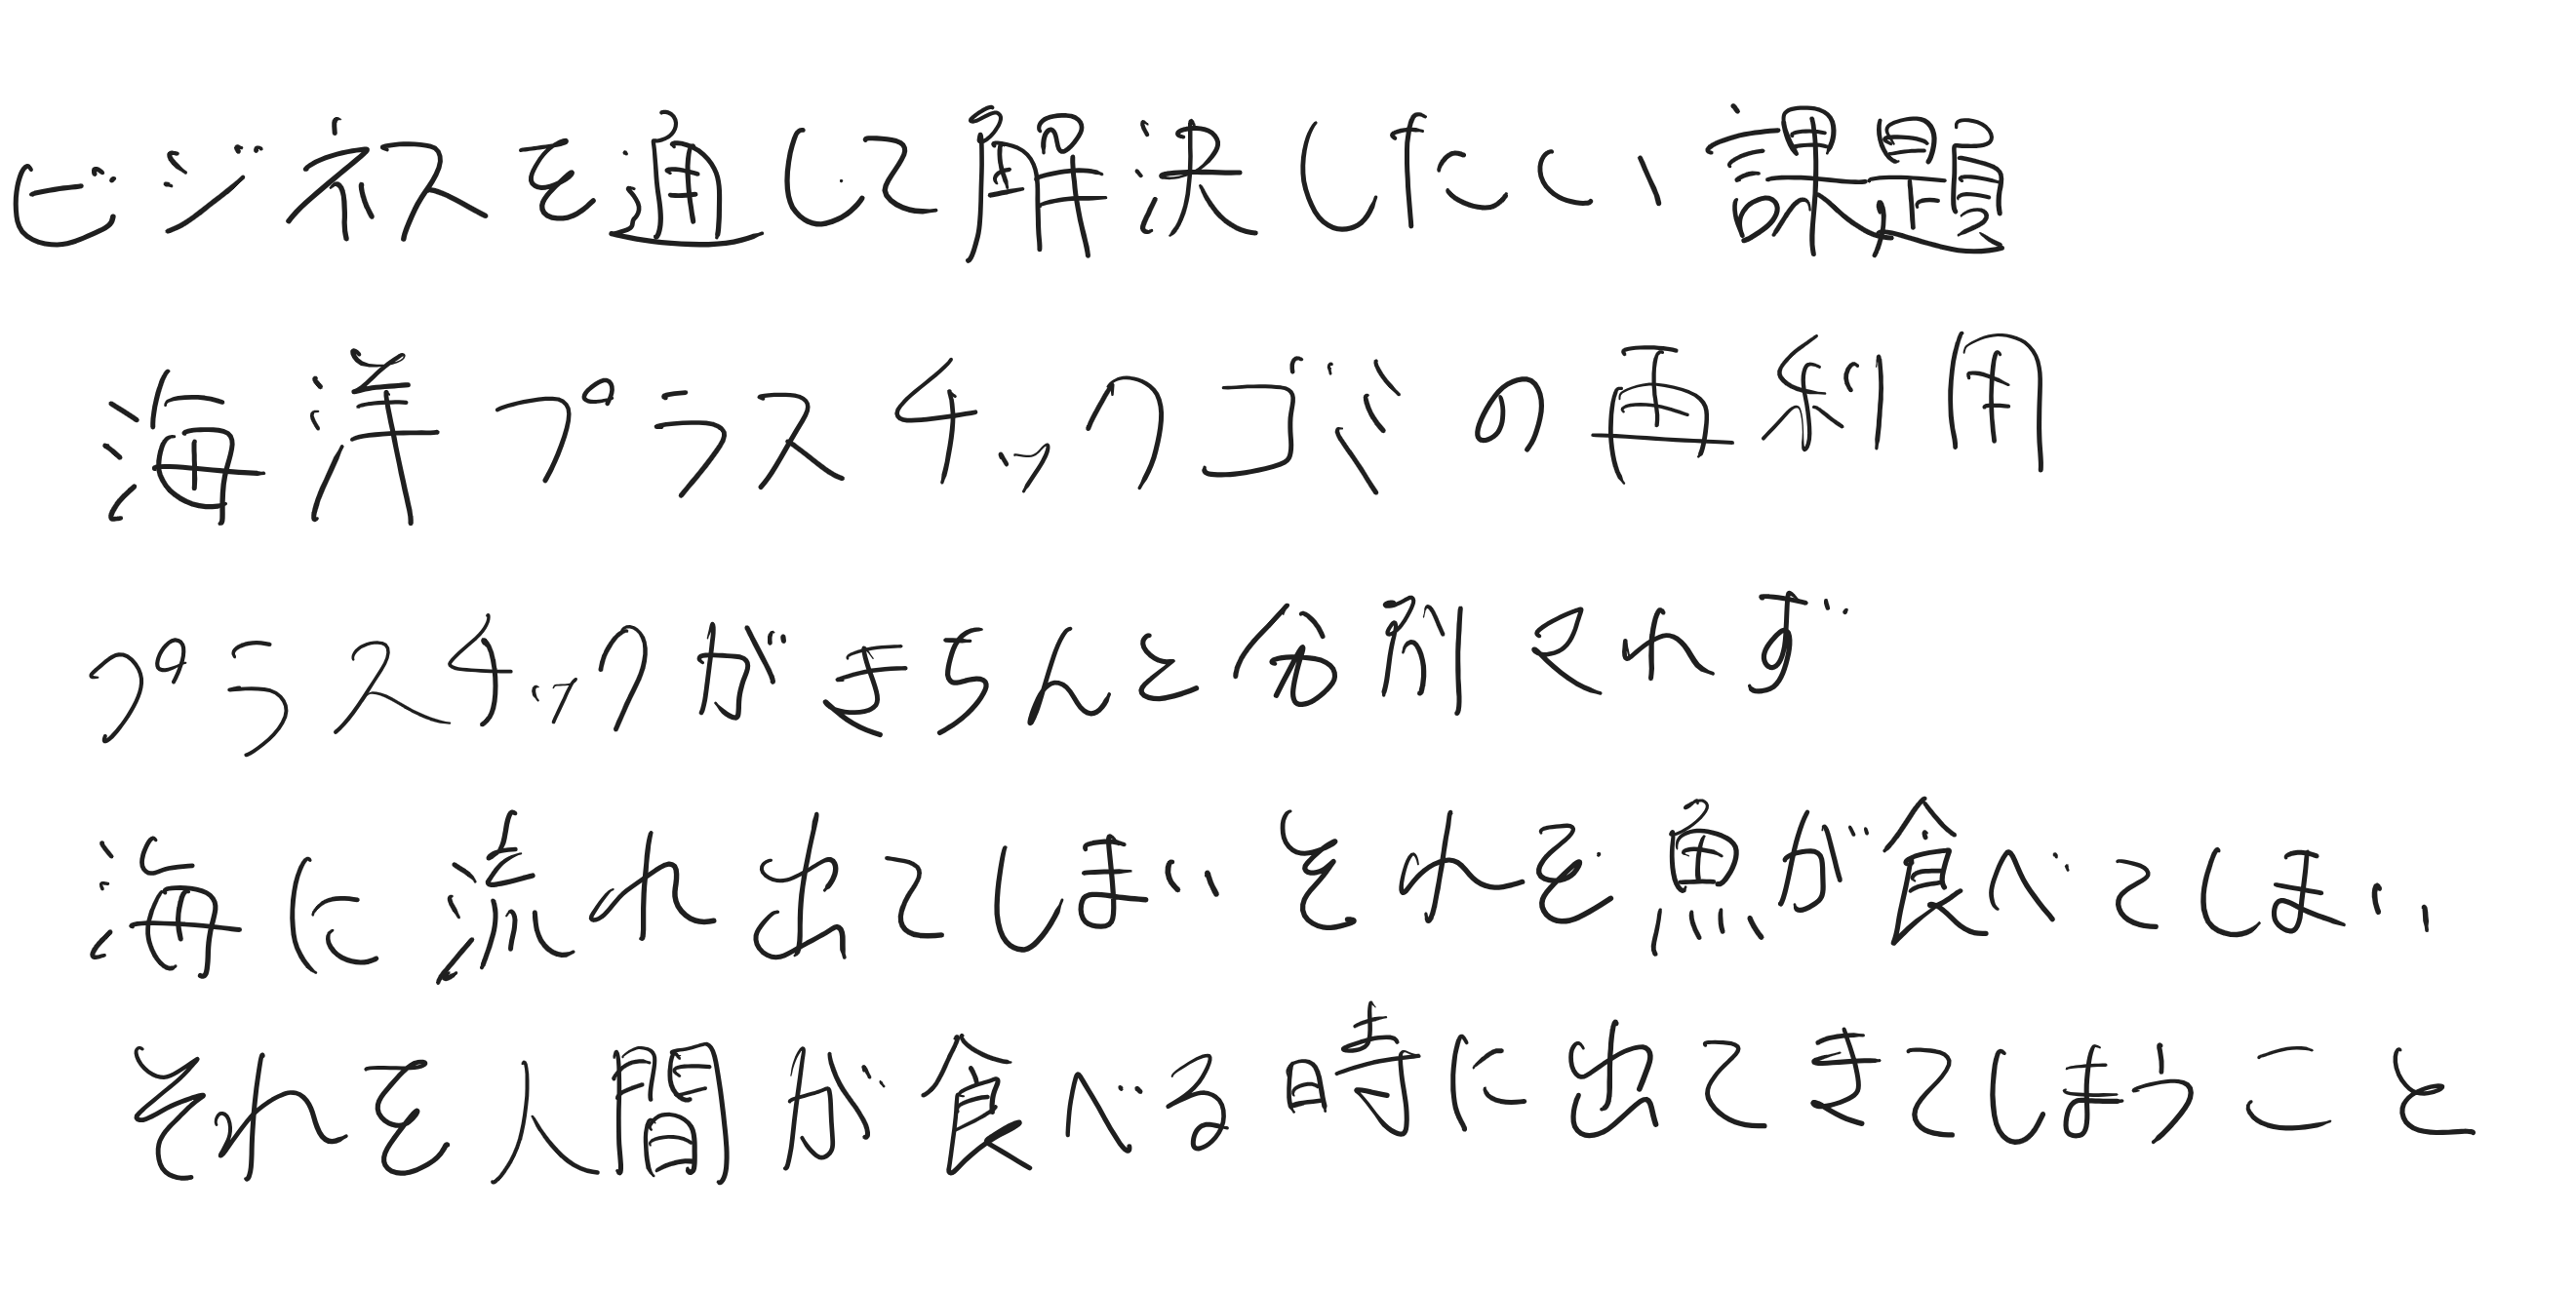 ビジネスを通して解決したい課題
海洋プラスチックゴミの再利用
プラスチックがきちんと分別されず
海に流れ出てしまいそれを魚が食べてしまい
それを人間が食べる時に出てきてしまうこと